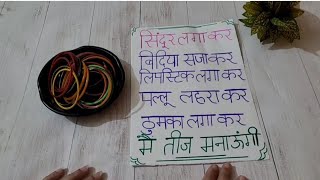 सिंदूर लगा कर
बिंदिया सजाकर
लिपस्टिक लगा कर
पल्लू लहरा कर
ठुमका लगा कर
मै तीज मनाऊंगी